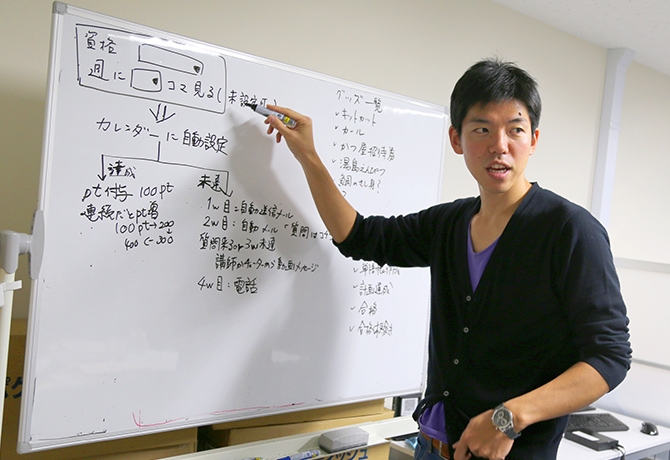 資格
週に コマ見る(未設定可
カレンダーに自動設定
達成
pt付与 100pt
連続だとpt増
100pt→200
400←300
未達
1w目:自動送信メール
2w目:自動メール「質問は
質問来るor3w未達
講師かチューターから 動画メッセージ
4w目:電話
グッズ一覧
✓キットカット
✓カール
✓かつ屋招待券
✓湯島天神
計画達成
✓合格
✓合格体験